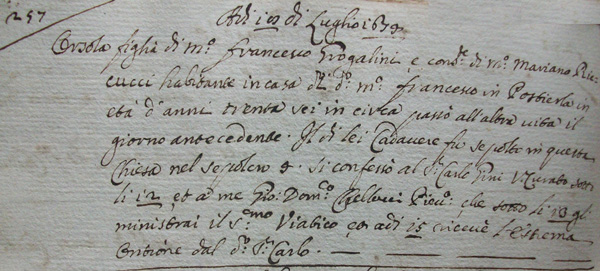 257
Adi di Luglio
Orsola figlia di m.o Francesco Grogalini e cons.te di m.o Mariano
cucci habitante in casa d.o m.o Francesco in Postierla in
età d'anni trenta sei in circa passò all'altra vita il
giorno antecedente. Il di lei Cadavere fù sepolto in questa
Chiesa nel sepolcro 9. si confessò al S.r Carlo Pini V. Curato sotto
li 12 et à me Gio: Dom.co Chellucci che sotto li 18 gl:
ministrai il S.mo Viatico et adi 15 riceuè l'estrema
Untione dal d.o S.r Carlo.